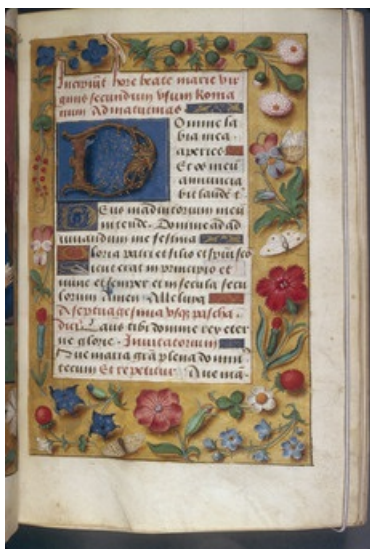 Incipiūt hore beate marie vir
ginis secundum vsum Roma
num Ad matutinas
Domine la
bia mea
aperies
Et os meū
annuncia
bit laudē t̄
Deus in adiutorium meū
intende. Domine ad ad
iuuandum me festina
Gloria patri et filio et spiri̅ sc̅o
sicut erat in principio et
nunc et semper et in secula secu
lorum Amen. Alleluya
A septuagesima vsq; pascha
dici. Laus tibi domine rex eter
ne glorie. Inuitatorium
Aue maria gr̄a plena do min̄
tecum Et repetitur Aue mā.